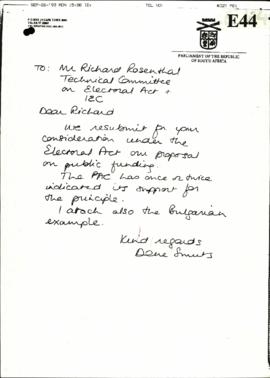 SEP-06-'93 MON 15:06 ID:
TEL NO:
E44
PARLIAMENT OF THE REPUBLIC
OF SOUTH AFRICA
TO: Mr Richard Rosenthal
Technical Committee
on Electoral Act +
IEC
Dear Richard
We resubmit for your
consideration under the
Electoral Act our proposal
on public funding.
The PAC has once or twice
indicated its support for
the principle.
I attach also the Bulgarian
example.
Kind regards
Dene Smuts